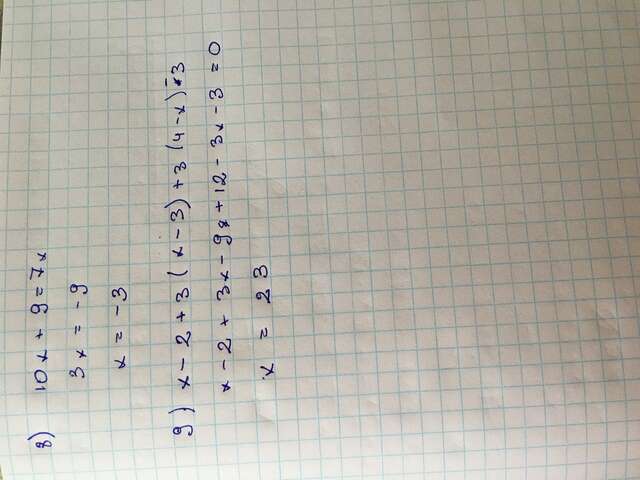 8) 10x + 9 = 7x
3x = -9
x = -3
9) x - 2 + 3 (x - 3) + 3 (4 - x) = 3
x - 2 + 3x - 9 + 12 - 3x - 3 = 0
x = 23